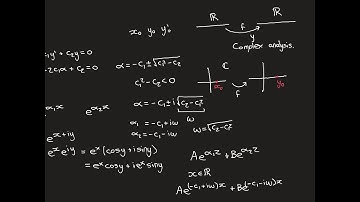 x₀ y₀ y₀'
ℝ f ℝ
y
Complex analysis.
c₁y' + c₂y = 0
-2c₁α + c₂ = 0
α = -c₁ ± √c₁² - c₂
c₁² - c₂ < 0
ℂ
x₀ f y₀
α = -c₁ ± i√c₂ - c₁²
ω
e^α₁x e^α₂x
α₁ = -c₁ + iω
α₂ = -c₁ - iω
ω = √c₂ - c₁²
e^x+iy
= e^x e^iy = e^x (cosy + i siny)
= e^x cosy + i e^x siny
Ae^α₁z + Be^α₂z
x ∈ ℝ
Ae^(-c₁+iω)x + Be^(-c₁-iω)x